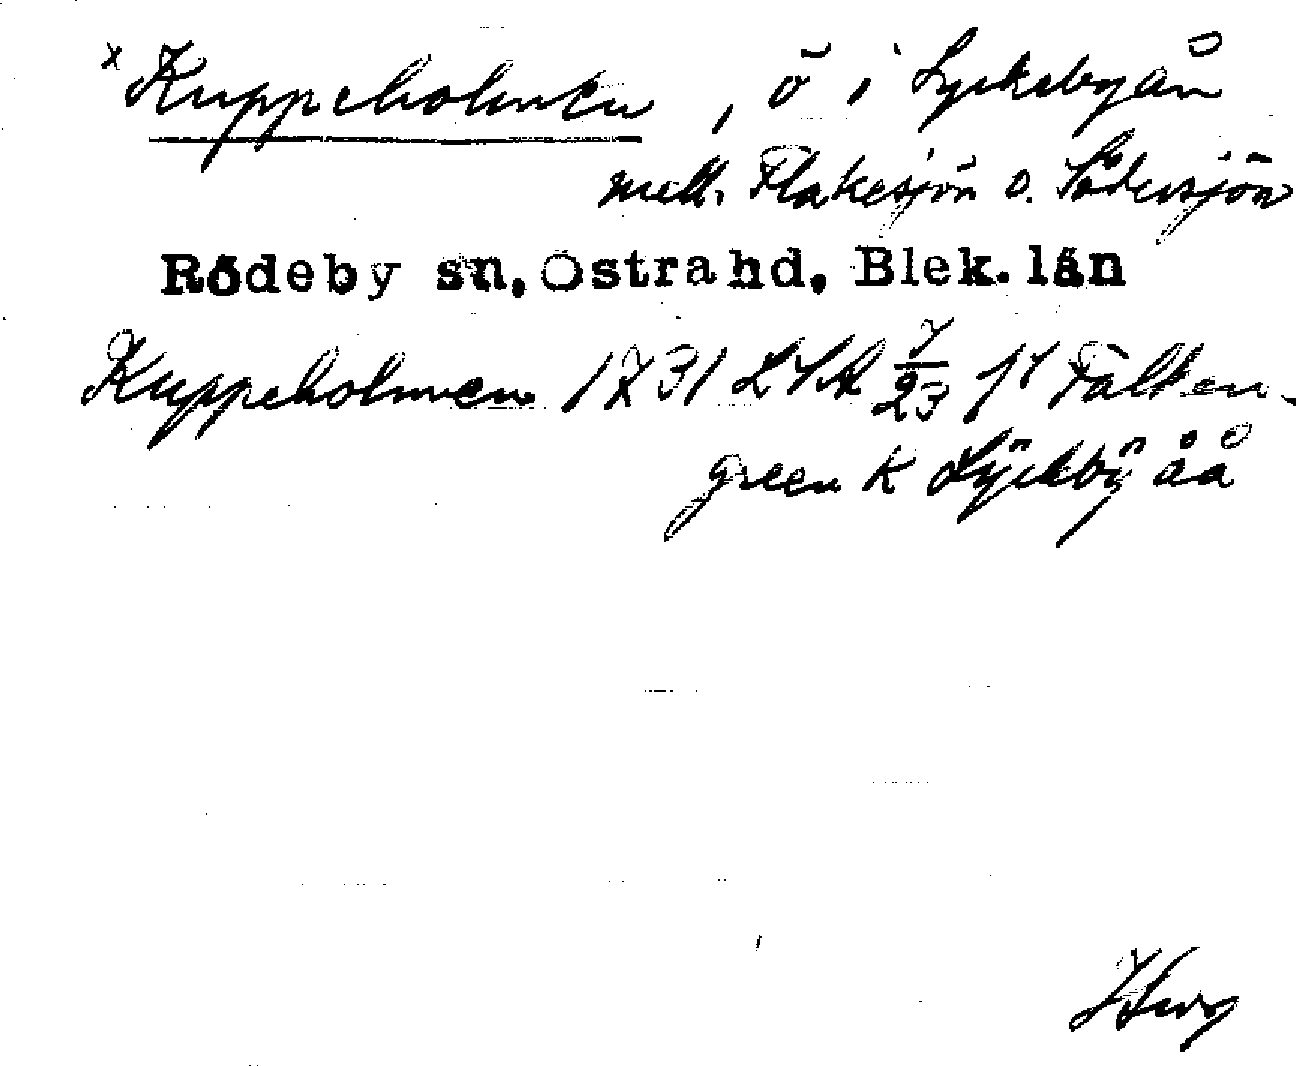 x Kuppeholmen, ö i Lyckebyån
mell. Flakesjön o. Södersjön
Rödeby sn, Östra hd, Blek. län
Kuppeholmen 1731 LSA 7/23 f1 Fälken-
green K Lÿckbÿ åå